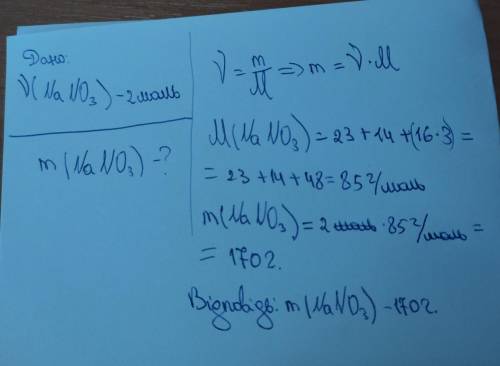 Дано:
ν(NaNO₃) - 2 моль
m(NaNO₃) - ?
ν = m/M => m = ν·M
M(NaNO₃) = 23 + 14 + (16·3) =
= 23 + 14 + 48 = 85 г/моль
m(NaNO₃) = 2 моль · 85 г/моль =
= 170 г.
Відповідь: m(NaNO₃) - 170 г.